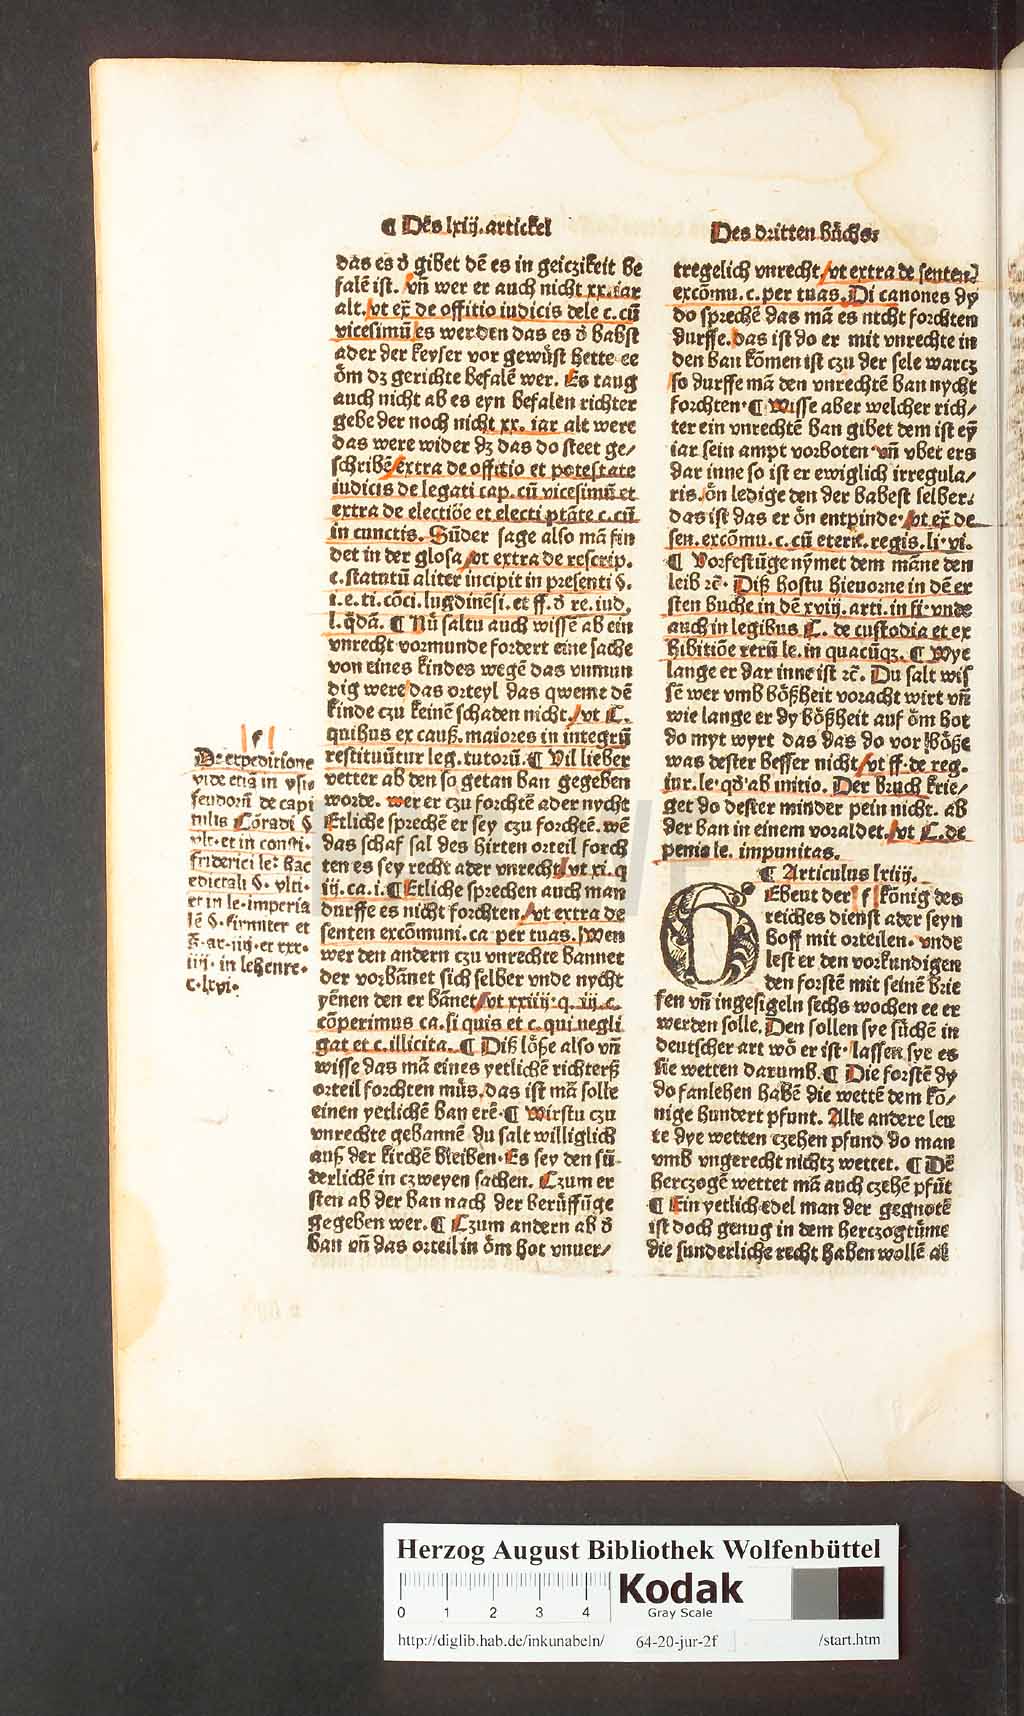 ¶ Dẽs lxiij.artickel
Des dritten bůchs:
das es ď gibet dẽ es in geiczikeit be
falẽ ist. vñ wer er auch nicht xx.iar
alt./vt ex̃ de offitio iudicis dele c.cũ
vicesimũ/es werden das es ď babst
ader der keyser vor gewůst hette ee
ǒm dz gerichte befalẽ wer. Es taug
auch nicht ab es eyn befalen richter
gebe der noch nicht xx. iar alt were
das were wider dz das do steet ge/
schribẽ/extra de offitio et potestate
iudicis de legati cap.cũ vicesimũ et
extra de electiõe et electi ptãte c.cũ
in cunctis. Sũder sage also mã fin
det in der glosa/vt extra de rescrip.
c.statutũ aliter incipit in presenti §.
i.e.ti.cõci.lugdinẽsi.et ff.ď re.iud.
l.q̃dã. ¶ Nũ saltu auch wissẽ ab ein
vnrecht vormunde fordert eine sache
von eines kindes wegẽ das vnmun
dig were/das orteyl das qweme dẽ
kinde czu keinẽ schaden nicht./vt C.
quibus ex cauß.maiores in integrũ
restituũtur leg.tutorũ. ¶ Vil lieber
vetter ab den so getan ban gegeben
worde. wer er czu forchtẽ ader nycht
Etliche sprechẽ er sey czu forchtẽ.wẽ
das schaf sal des hirten orteil forch
ten es sey recht ader vnrecht/vt xi.q
iij.ca.i. ¶ Etliche sprechen auch man
durffe es nicht forchten./vt extra de
senten excõmuni.ca per tuas. Wen
wer den andern czu vnrechte bannet
der vorbãnet sich selber vnde nycht
yẽnen den er bãnet/vt xxiiij.q.iij.c.
cõperimus ca.si quis et c.qui negli
gat et c.illicita. ¶ Diß lǒße also vñ
wisse das mã eines yetlichẽ richterß
orteil forchten můs.das ist mã solle
einen yetlichẽ ban erẽ. ¶ Wirstu czu
vnrechte gebannẽ du salt williglich
auß der kirchẽ bleiben. Es sey den sũ-
derlichẽ in czweyen sachen. Czum er
sten ab der ban nach der berůffũge
gegeben wer. ¶ Czum andern ab ď
ban vñ das orteil in ǒm hot vnuer/
f
De expeditione
vide etiã in vsis
feudorũ de capi
tulis Cõradi §
vlt.et in consti.
friderici le. hac
edictali §. vlti.
et in le.imperia
lẽ §.firmiter et
s̃.ar.iiij.et xxx.
iiij.in lehenre.
c.lxvi.
tregelich vnrecht/vt extra de senten.
excõmu.c.per tuas. Di canones dy
do sprechẽ das mã es nicht forchten
durffe. das ist do er mit vnrechte in
den ban kõmen ist czu der sele warcz
so durffe mã den vnrechtẽ ban nycht
forchten. ¶ Wisse aber welcher rich/
ter ein vnrechtẽ ban gibet dem ist eỹ
iar sein ampt vorboten. vñ vbet ers
dar inne so ist er ewiglich irregula/
ris.ǒn ledige den der babest selber.
das ist das er ǒn entpinde./vt ex̃ de
sen.excõmu.c.cũ eterẽ.regis.li.vi.
¶ Vorfestũge nỹmet dem mãne den
leib ꝛc̃. Diß hostu hieuorne in dẽ er
sten buche in dẽ xviij.arti.in fi.vnde
auch in legibus C. de custodia et ex
hibitiõe rerũ le.in quacũqz. ¶ Wye
lange er dar inne ist ꝛc̃. Du salt wis
sẽ wer vmb bǒßheit voracht wirt vñ
wie lange er dy bǒßheit auf ǒm hot
do myt wyrt das das do vor bǒße
was dester besser nicht/vt ff.de reg.
iur.le.qď ab initio. Der bruch krie/
get do dester minder pein nicht. ab
der ban in einem voraldet./vt C.de
penis le. impunitas.
¶ Articulus lxiiij.
Ebeut der f kônig des
reiches dienst ader seyn
hoff mit orteilen. vnde
lest er den vorkundigen
den forstẽ mit seinẽ brie
fen vñ ingesigeln sechs wochen ee er
werden solle. Den sollen sye sůchẽ in
deutscher art wǒ er ist. lassen sye es
sie wetten darumb. ¶ Die forstẽ dy
do fanlehen habẽ die wettẽ dem kõ/
nige hundert pfunt. Alle andere leu
te dye wetten czehen pfund do man
vmb vngerecht nichtz wettet. ¶ Dẽ
herczogẽ wettet mã auch czehẽ pfũt
¶ Ein yetlich edel man der gegnotẽ
ist doch genug in dem herczogtůme
die sunderliche recht haben wollẽ als
Herzog August Bibliothek Wolfenbüttel
0 1 2 3 4
Kodak
Gray Scale
http://diglib.hab.de/inkunabeln/ 64-20-jur-2f /start.htm